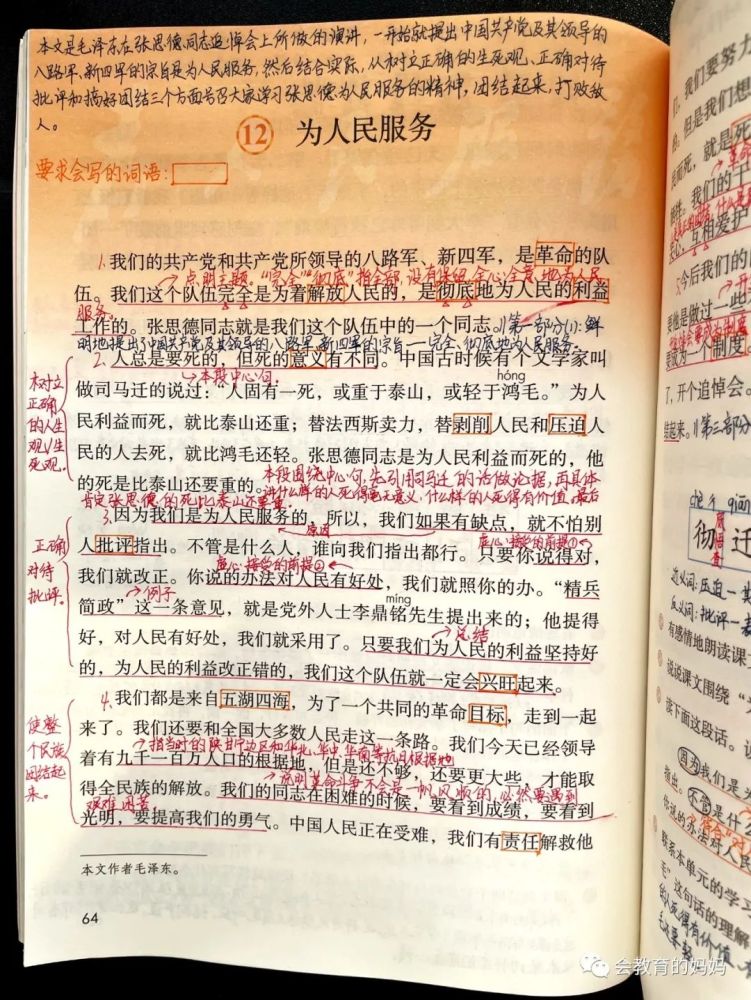 本文是毛泽东在张思德同志追悼会上所做的演讲,一开始就提出中国共产党及其领导的
八路军、新四军的宗旨是为人民服务,然后结合实际,从树立正确的生死观、正确对待
批评和搞好团结三个方面号召大家学习张思德为人民服务的精神,团结起来,打败敌
人。
12 为人民服务
要求会写的词语:
1.我们的共产党和共产党所领导的八路军、新四军,是革命的队
点明主题。“完全”“彻底”指全部,没有保留,全心全意地为人民
伍。我们这个队伍完全是为着解放人民的,是彻底地为人民的利益
服务。
工作的。张思德同志就是我们这个队伍中的一个同志。//第一部分(1):鲜
明地提出了中国共产党及其领导的八路军、新四军的宗旨——完全、彻底地为人民服务。
2.人总是要死的,但死的意义有不同。中国古时候有个文学家叫
本段中心句。
hóng
做司马迁的说过:“人固有一死,或重于泰山,或轻于鸿毛。”为人
民利益而死,就比泰山还重;替法西斯卖力,替剥削人民和压迫人
民的人去死,就比鸿毛还轻。张思德同志是为人民利益而死的,他
的死是比泰山还要重的。
本段围绕中心句,先引用司马迁的话做论据,再具体
讲什么样的人死得毫无意义,什么样的人死得有价值,最后
肯定张思德的死比泰山还要重。
树立
正确
的人生
观、生
死观。
3.因为我们是为人民服务的,所以,我们如果有缺点,就不怕别
原因
虚心接受的前提①
人批评指出。不管是什么人,谁向我们指出都行。只要你说得对,
虚心接受的前提②
我们就改正。你说的办法对人民有好处,我们就照你的办。“精兵
例子
míng
简政”这一条意见,就是党外人士李鼎铭先生提出来的;他提得
总结
好,对人民有好处,我们就采用了。只要我们为人民的利益坚持好
的,为人民的利益改正错的,我们这个队伍就一定会兴旺起来。
正确
对待
批评。
4.我们都是来自五湖四海,为了一个共同的革命目标,走到一起
来了。我们还要和全国大多数人民走这一条路。我们今天已经领导
指当时的陕甘宁边区和华北、华中、华南等抗日根据地
着有九千一百万人口的根据地,但是还不够,还要更大些,才能取
点明革命斗争不会是一帆风顺的,必然要遇到
艰难困苦
得全民族的解放。我们的同志在困难的时候,要看到成绩,要看到
光明,要提高我们的勇气。中国人民正在受难,我们有责任解救他
使整
个民族
团结起
来。
本文作者毛泽东。
64
们,我们要努力
但是我们想
民而死,就是死
革命
我们的干
互相爱护
5.今后我们的
要他是做过一些
要成为一个制度
了,开个追悼会。
结起来。//第三部分
chè qiān
彻 迁
近义词:压迫—
反义词:批评—
有感情地朗读课
说说课文围绕“
读下面这段话。
因为我们是为
指出。不管是什
你说的办法对人民
联系本单元的学习
毛”这句话的理解
的人死得有价值
会教育的妈妈